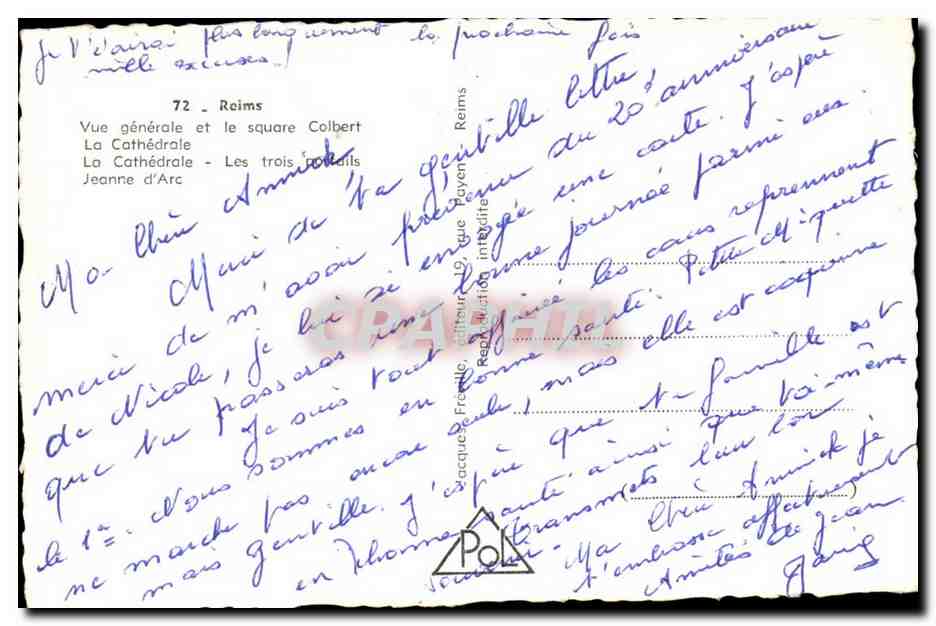 Je t'écrirai plus longuement la prochaine fois
mille excuses!
72 - Reims
Vue générale et le square Colbert
La Cathédrale
La Cathédrale - Les trois portails
Jeanne d'Arc
Ma chère Annick
Merci de ta gentille lettre,
merci de m'avoir prévenue du 20è anniversaire
de Nicole, je lui ai envoyée une carte. J'espère
que tu passeras une bonne journée parmi eux.
Je suis tout les cours reprennent
le 1er. Nous sommes en bonne santé. Petite Miquette
ne marche pas encore seule, mais elle est coquine
mais gentille. J'espère que ta famille est
en bonne santé ainsi que toi-même
transmets leur bon
souvenir. Ma chère Annick je
t'embrasse affectueusement
Amitiés de Jean
Jacques Fréville, éditeur, 19, rue Payen, Reims
Reproduction interdite
CPAPHIL
POL